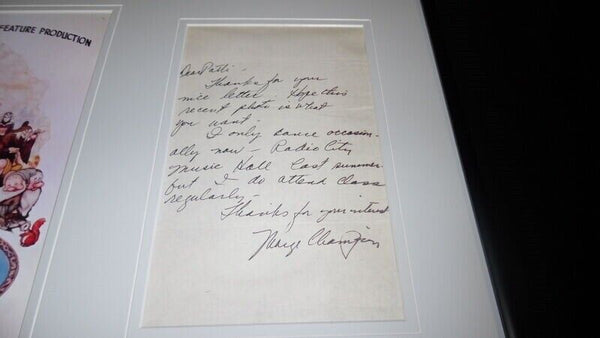 FEATURE PRODUCTION
Dear Patti -
Thanks for your
nice letter. Hope this
recent photo is what
you want -
I only dance occasion-
ally now - Radio City
Music Hall last summer
but I do attend class
regularly -
Thanks for your interest
Marge Champion